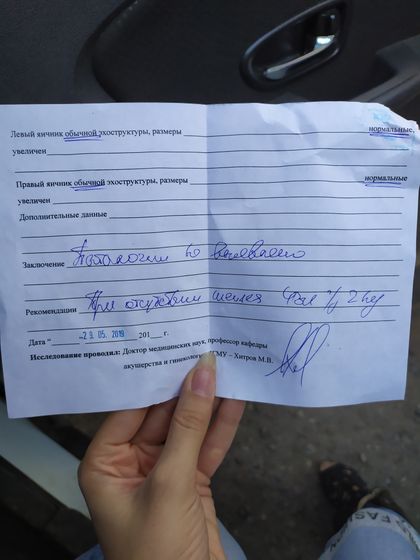 Левый яичник обычной эхоструктуры, размеры нормальные,
увеличен
Правый яичник обычной эхоструктуры, размеры нормальные
увеличен
Дополнительные данные
Заключение Патологии не выявлено
Рекомендации При отсутствии
Дата “ 29.05.2019 201 г.
Исследование проводил: Доктор медицинских наук, профессор кафедры
акушерства и гинекологии – Хитров М.В.
FASHION